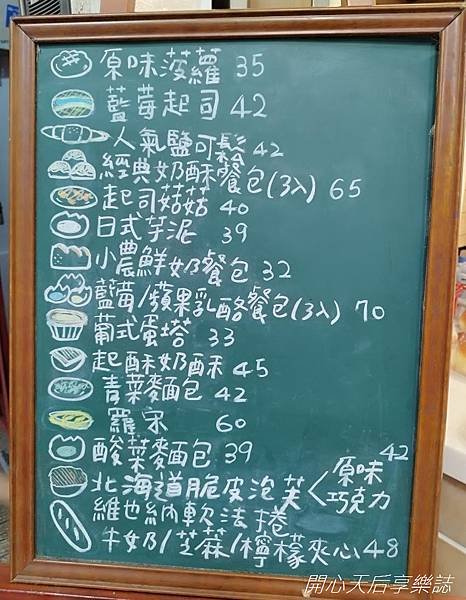 原味菠蘿 35
藍莓起司 42
人氣鹽可鬆 42
經典奶酥餐包(3入) 65
起司菇菇 40
日式芋泥 39
小農鮮奶餐包 32
藍莓/蘋果乳酪餐包(3入) 70
葡式蛋塔 33
起酥奶酥 45
青菜麵包 42
羅宋 60
酸菜麵包 39
北海道脆皮泡芙<原味 巧克力 42
維也納軟法捲
牛奶/芝蔴/檸檬夾心 48
開心天后享樂誌